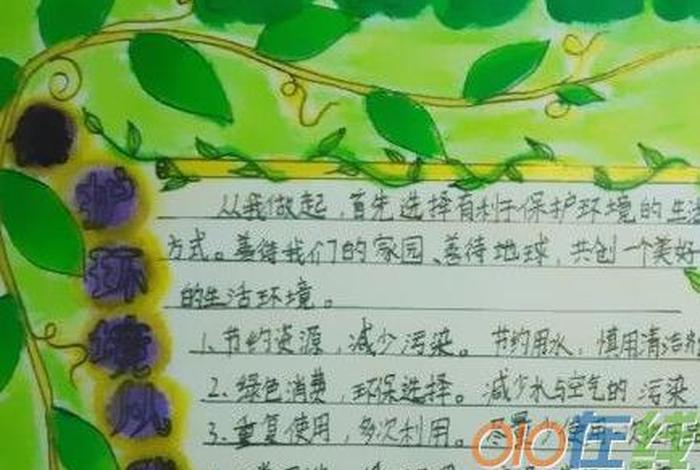 护环境从
从我做起，首先选择有利于保护环境的生
方式。善待我们的家园、善待地球，共创一个美好
的生活环境。
1、节约资源，减少污染。节约用水，慎用清洁
2、绿色消费，环保选择。减少水与空气的污染
3、重复使用，多次利用。尽量少使用一次
010在线